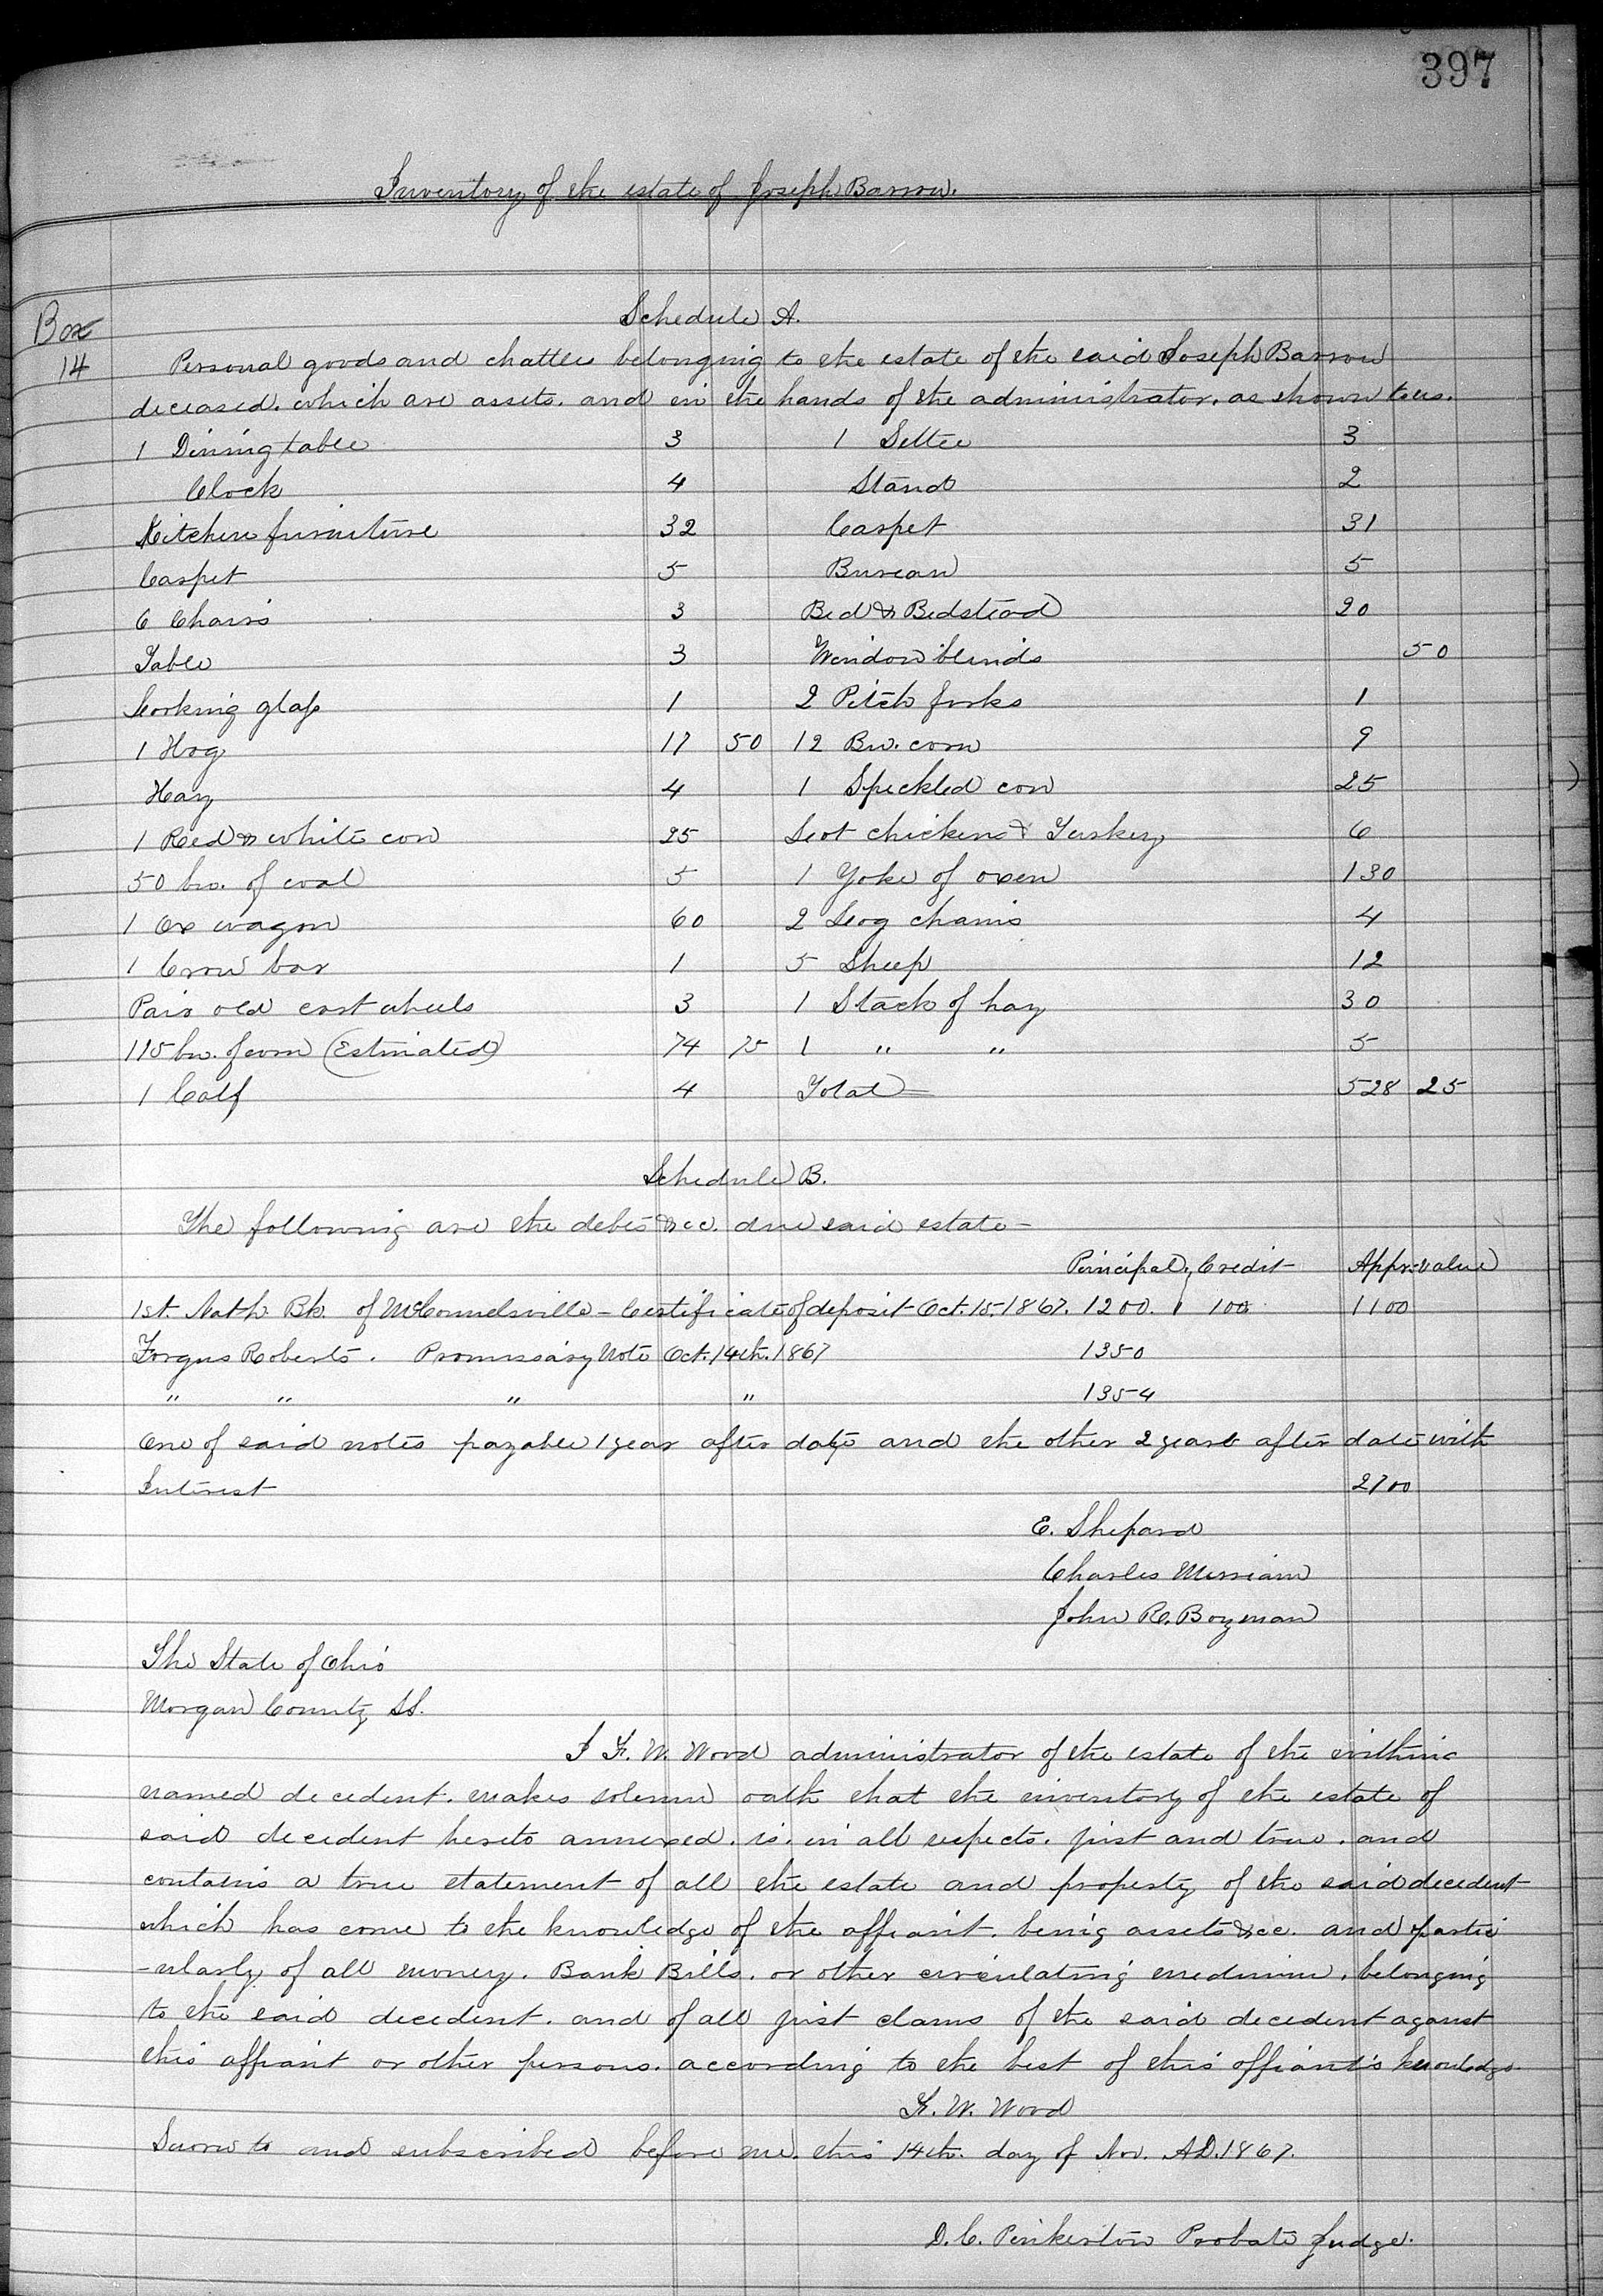 397
Inventory of the estate of Joseph Barrow.
Schedule A.
Box
14
Personal goods and chattles belonging to the estate of the said Joseph Barrow
deceased. which are assets. and in the hands of the administrator. as shown to us.
1 Dining table 3 1 Settee 3
Clock 4 Stand 2
Kitchen furniture 32 Carpet 31
Carpet 5 Bureau 5
6 Chairs 3 Bed & Bedstead 20
Table 3 Window blinds 50
Looking glass 1 2 Pitch forks 1
1 Hog 17 50 12 Bu. corn 9
Hay 4 1 Speckled cow 25
1 Red & white cow 25 Lot chickens & Turkey 6
50 bu. of coal 5 1 Yoke of oxen 130
1 Ox wagon 60 2 Log chains 4
1 Crow bar 1 5 Sheep 12
Pair old cart wheels 3 1 Stack of hay 30
115 bu. of corn (Estimated) 74 75 1 " " 5
1 Calf 4 Total 528 25
Schedule B.
The following are the debts &cc. due said estate —
Principal, Credit Appr. value
1st. Natl. Bk. of McConnelsville — Certificate of deposit Oct. 15. 1867. 1200. 100 1100
Fergus Roberts. Promissary Note Oct. 14th. 1867 1350
" " " " 1354
One of said notes payable 1 year after date and the other 2 years after date with
Interest 2700
E. Shepard
Charles Merriam
John R. Bozman
The State of Ohio
Morgan County SS.
I F. W. Wood administrator of the estate of the within
named decedent. makes solemn oath that the inventory of the estate of
said decedent hereto annexed. is. in all respects. just and true. and
contains a true statement of all the estate and property of the said decedent
which has come to the knowledge of the affiant. being assets &cc. and partic
-ularly of all money. Bank Bills. or other circulating medium. belonging
to the said decedent. and of all just clams of the said decedent aganst
this affiant or other persons. according to the best of this affiant's knowledge.
F. W. Wood
Sworn to and subscribed before me. this 14th. day of Nov. A.D. 1867.
D. C. Pinkerton Probate Judge.